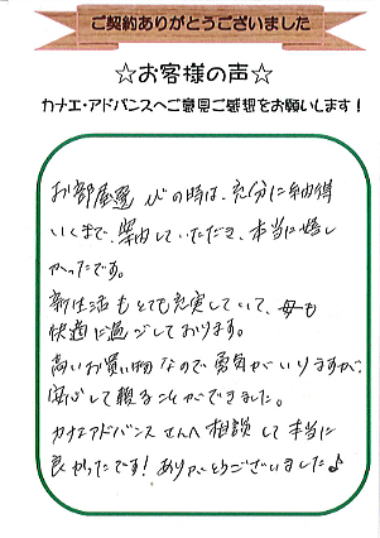 ご契約ありがとうございました
☆お客様の声☆
カナエ・アドバンスへご意見ご感想をお願いします！
お部屋選びの時は、充分に納得
いくまで、案内していただき、本当に嬉し
かったです。
新生活もとても充実していて、母も
快適に過ごしております。
高いお買い物なので勇気がいりますが、
安心して観ることができました。
カナエアドバンスさんへ相談して本当に
良かったです！ありがとうございました♪